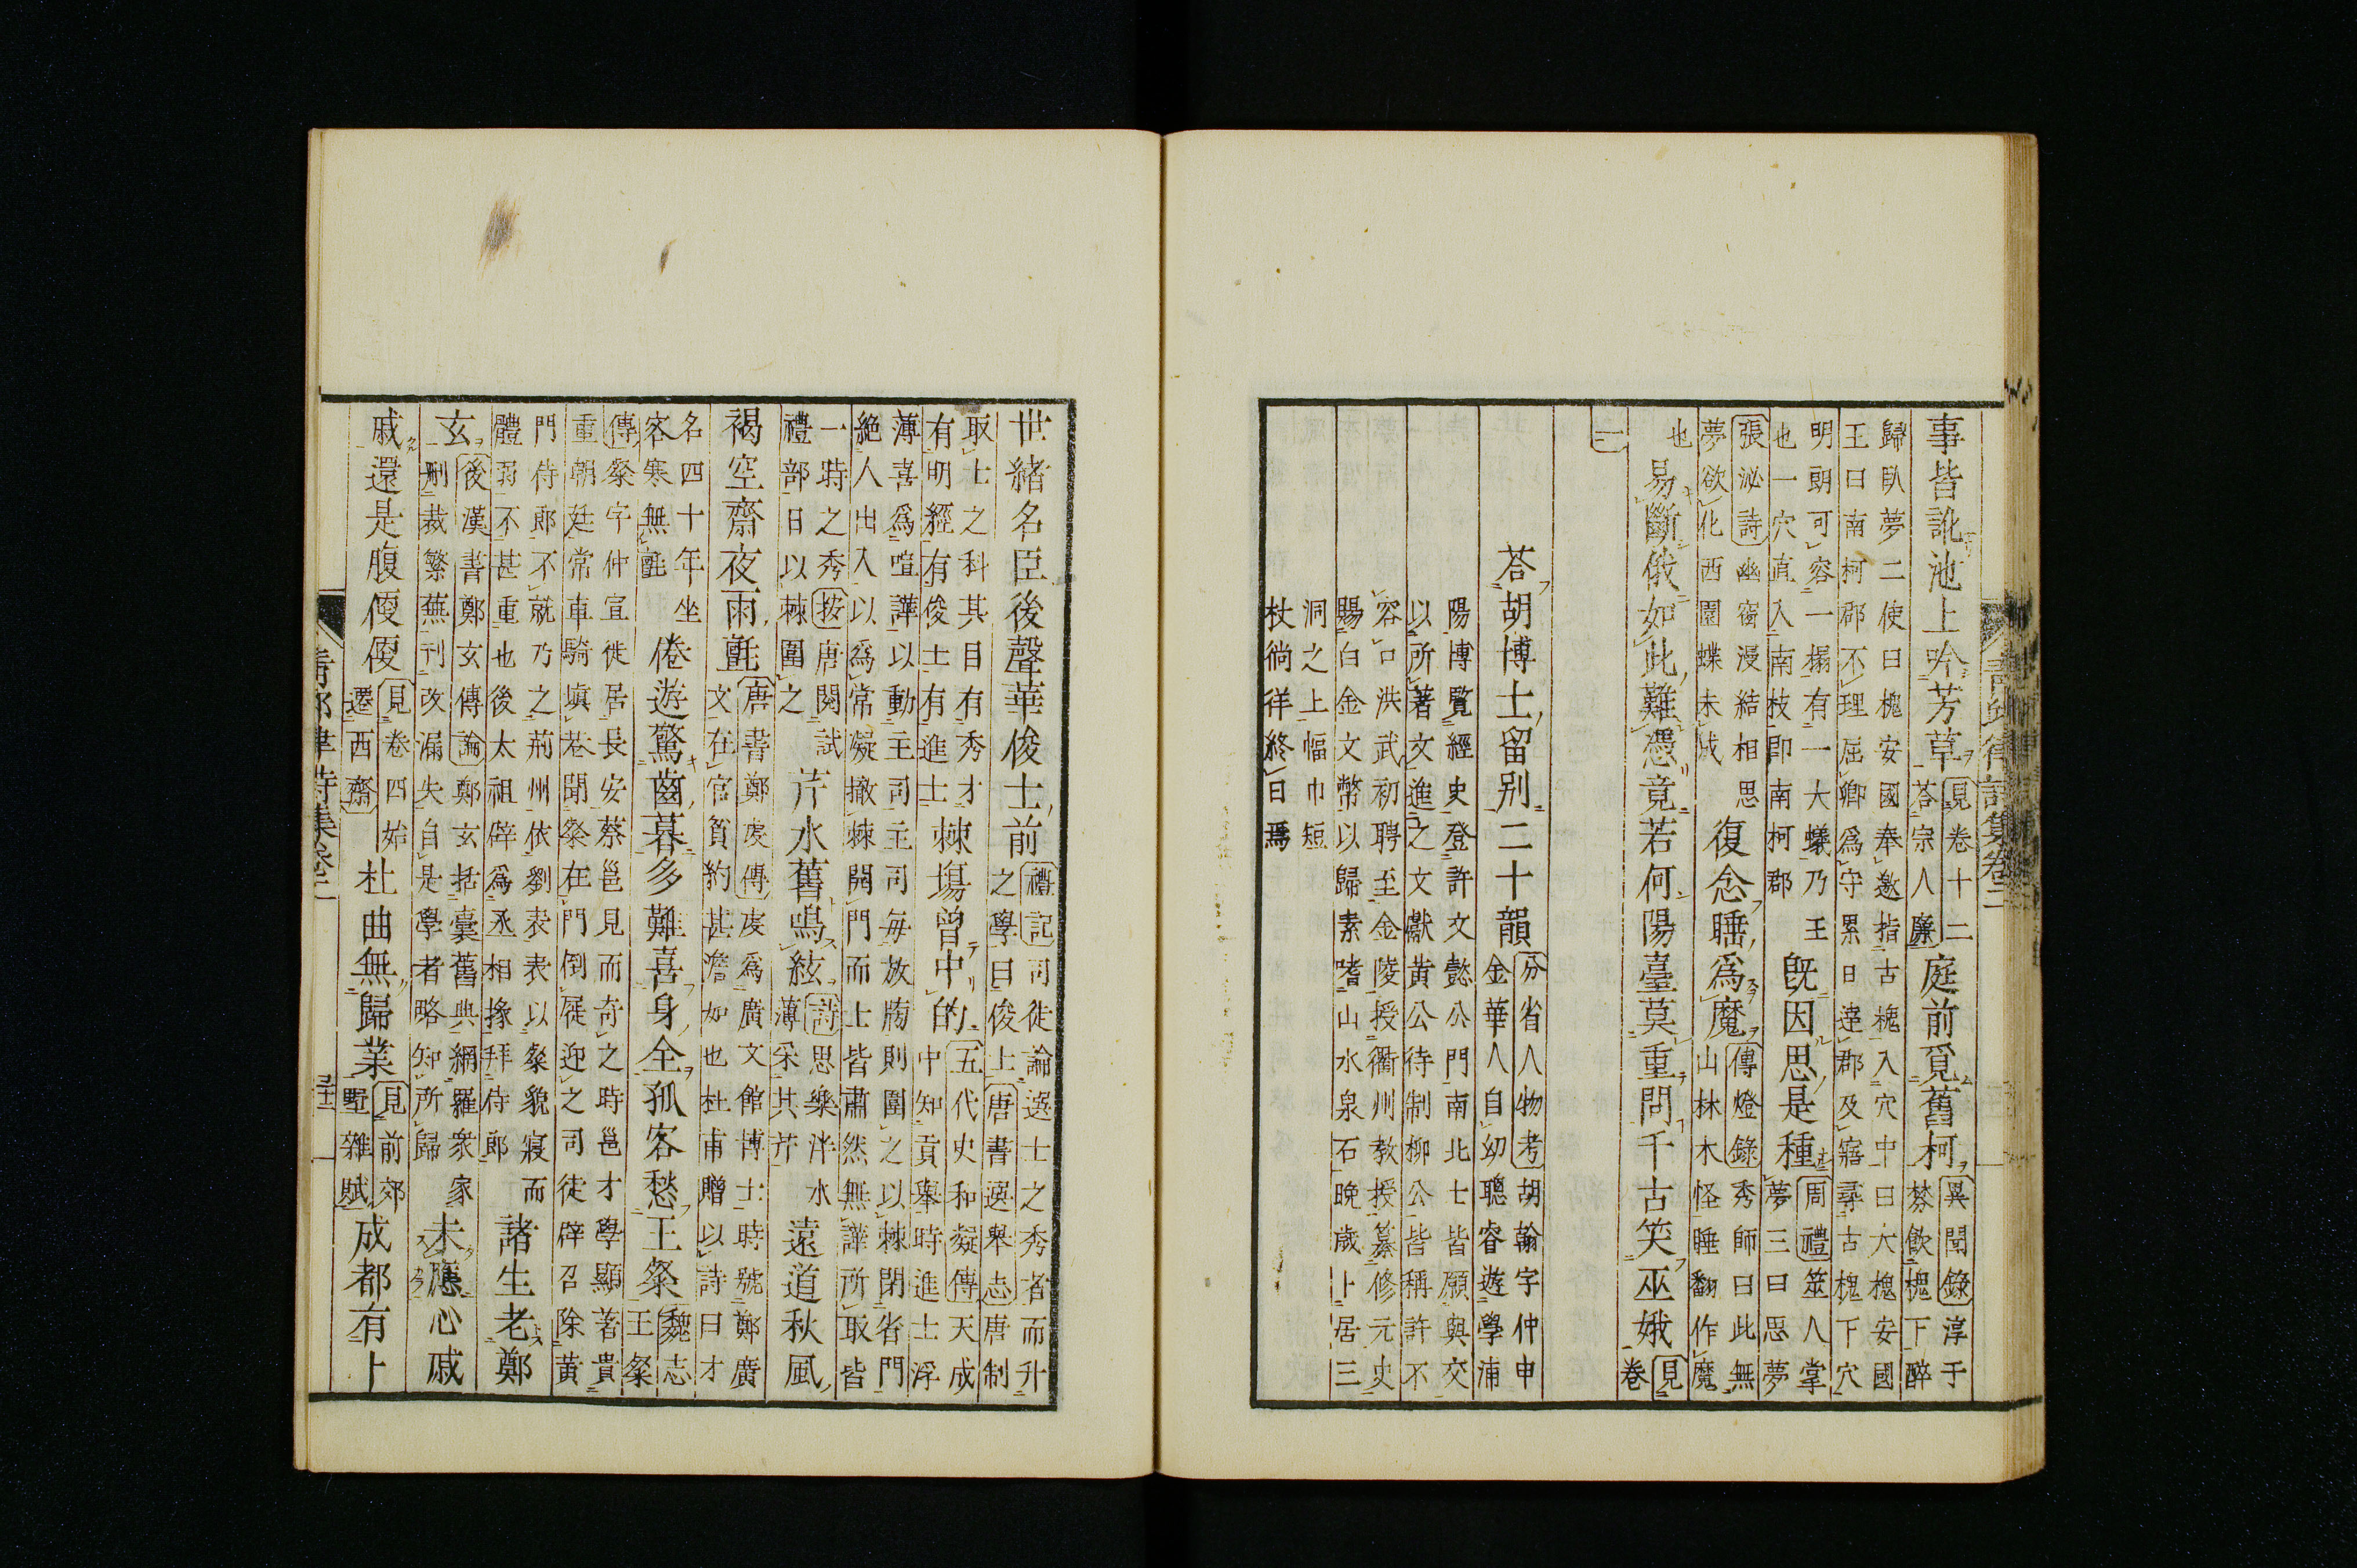 青邱律詩集卷二
事皆訛池上吟芳草
見卷十二
荅宗人廉
庭前覓舊柯
異聞錄淳于
棼飲槐下醉
歸臥夢二使曰槐安國奉邀指古槐入穴中曰大槐安國
王曰南柯郡不理屈卿爲守累日達郡及寤尋古槐下穴
明朗可容一榻有一大蟻乃王
也一穴直入南枝卽南柯郡
旣因思是種
周禮筮人掌
夢三曰思夢
張泌詩幽窗漫結相思
夢欲化西園蝶未成
復念睡爲魔
傳燈錄秀師曰此無
山林木怪睡翻作魔
也
易斷俄如此難憑竟若何陽臺莫重問千古笑巫娥
見
卷
二
荅胡博士留別二十韻
分省人物考胡翰字仲申
金華人自幼聰睿遊學浦
陽博覽經史登許文懿公門南北士皆願與交
以所著文進之文獻黄公待制柳公皆稱許不
容口洪武初聘至金陵授衢州教授纂修元史
賜白金文幣以歸素嗜山水泉石晚歲卜居三
洞之上幅巾短
杖徜徉終日焉
世緒名臣後聲華俊士前
禮記司徒論選士之秀者而升
之學曰俊士
唐書選舉志唐制
取士之科其目有秀才
有明經有俊士有進士
棘塲曾中的
五代史和凝傳天成
中知貢舉時進士浮
薄喜爲喧譁以動主司主司每放牓則圍之以棘閉省門
絶人出入以爲常凝撤棘開門而士皆肅然無譁所取皆
一時之秀按唐閱試
禮部日以棘圍之
芹水舊鳴絃
詩思樂泮水
薄采其芹
遠道秋風
褐空齋夜雨氈
唐書鄭虔傳虔爲廣文館博士時號鄭廣
文在官貧約甚澹如也杜甫贈以詩曰才
名四十年坐
客寒無氈
倦遊驚齒暮多難喜身全孤客愁王粲
魏志
王粲
傳粲字仲宣徙居長安蔡邕見而奇之時邕才學顯著貴
重朝廷常車騎塡巷聞粲在門倒屣迎之司徒辟召除黄
門侍郎不就乃之荊州依劉表表以粲貌寢而
體弱不甚重也後太祖辟爲丞相掾拜侍郎
諸生老鄭
玄
後漢書鄭玄傳論鄭玄括囊舊典網羅衆家
刪裁繁蕪刊改漏失自是學者略知所歸
未應心戚
戚還是腹便便
見卷四始
遷西齋
杜曲無歸業
見前郊
墅雜賦
成都有卜
青邱律詩集卷二